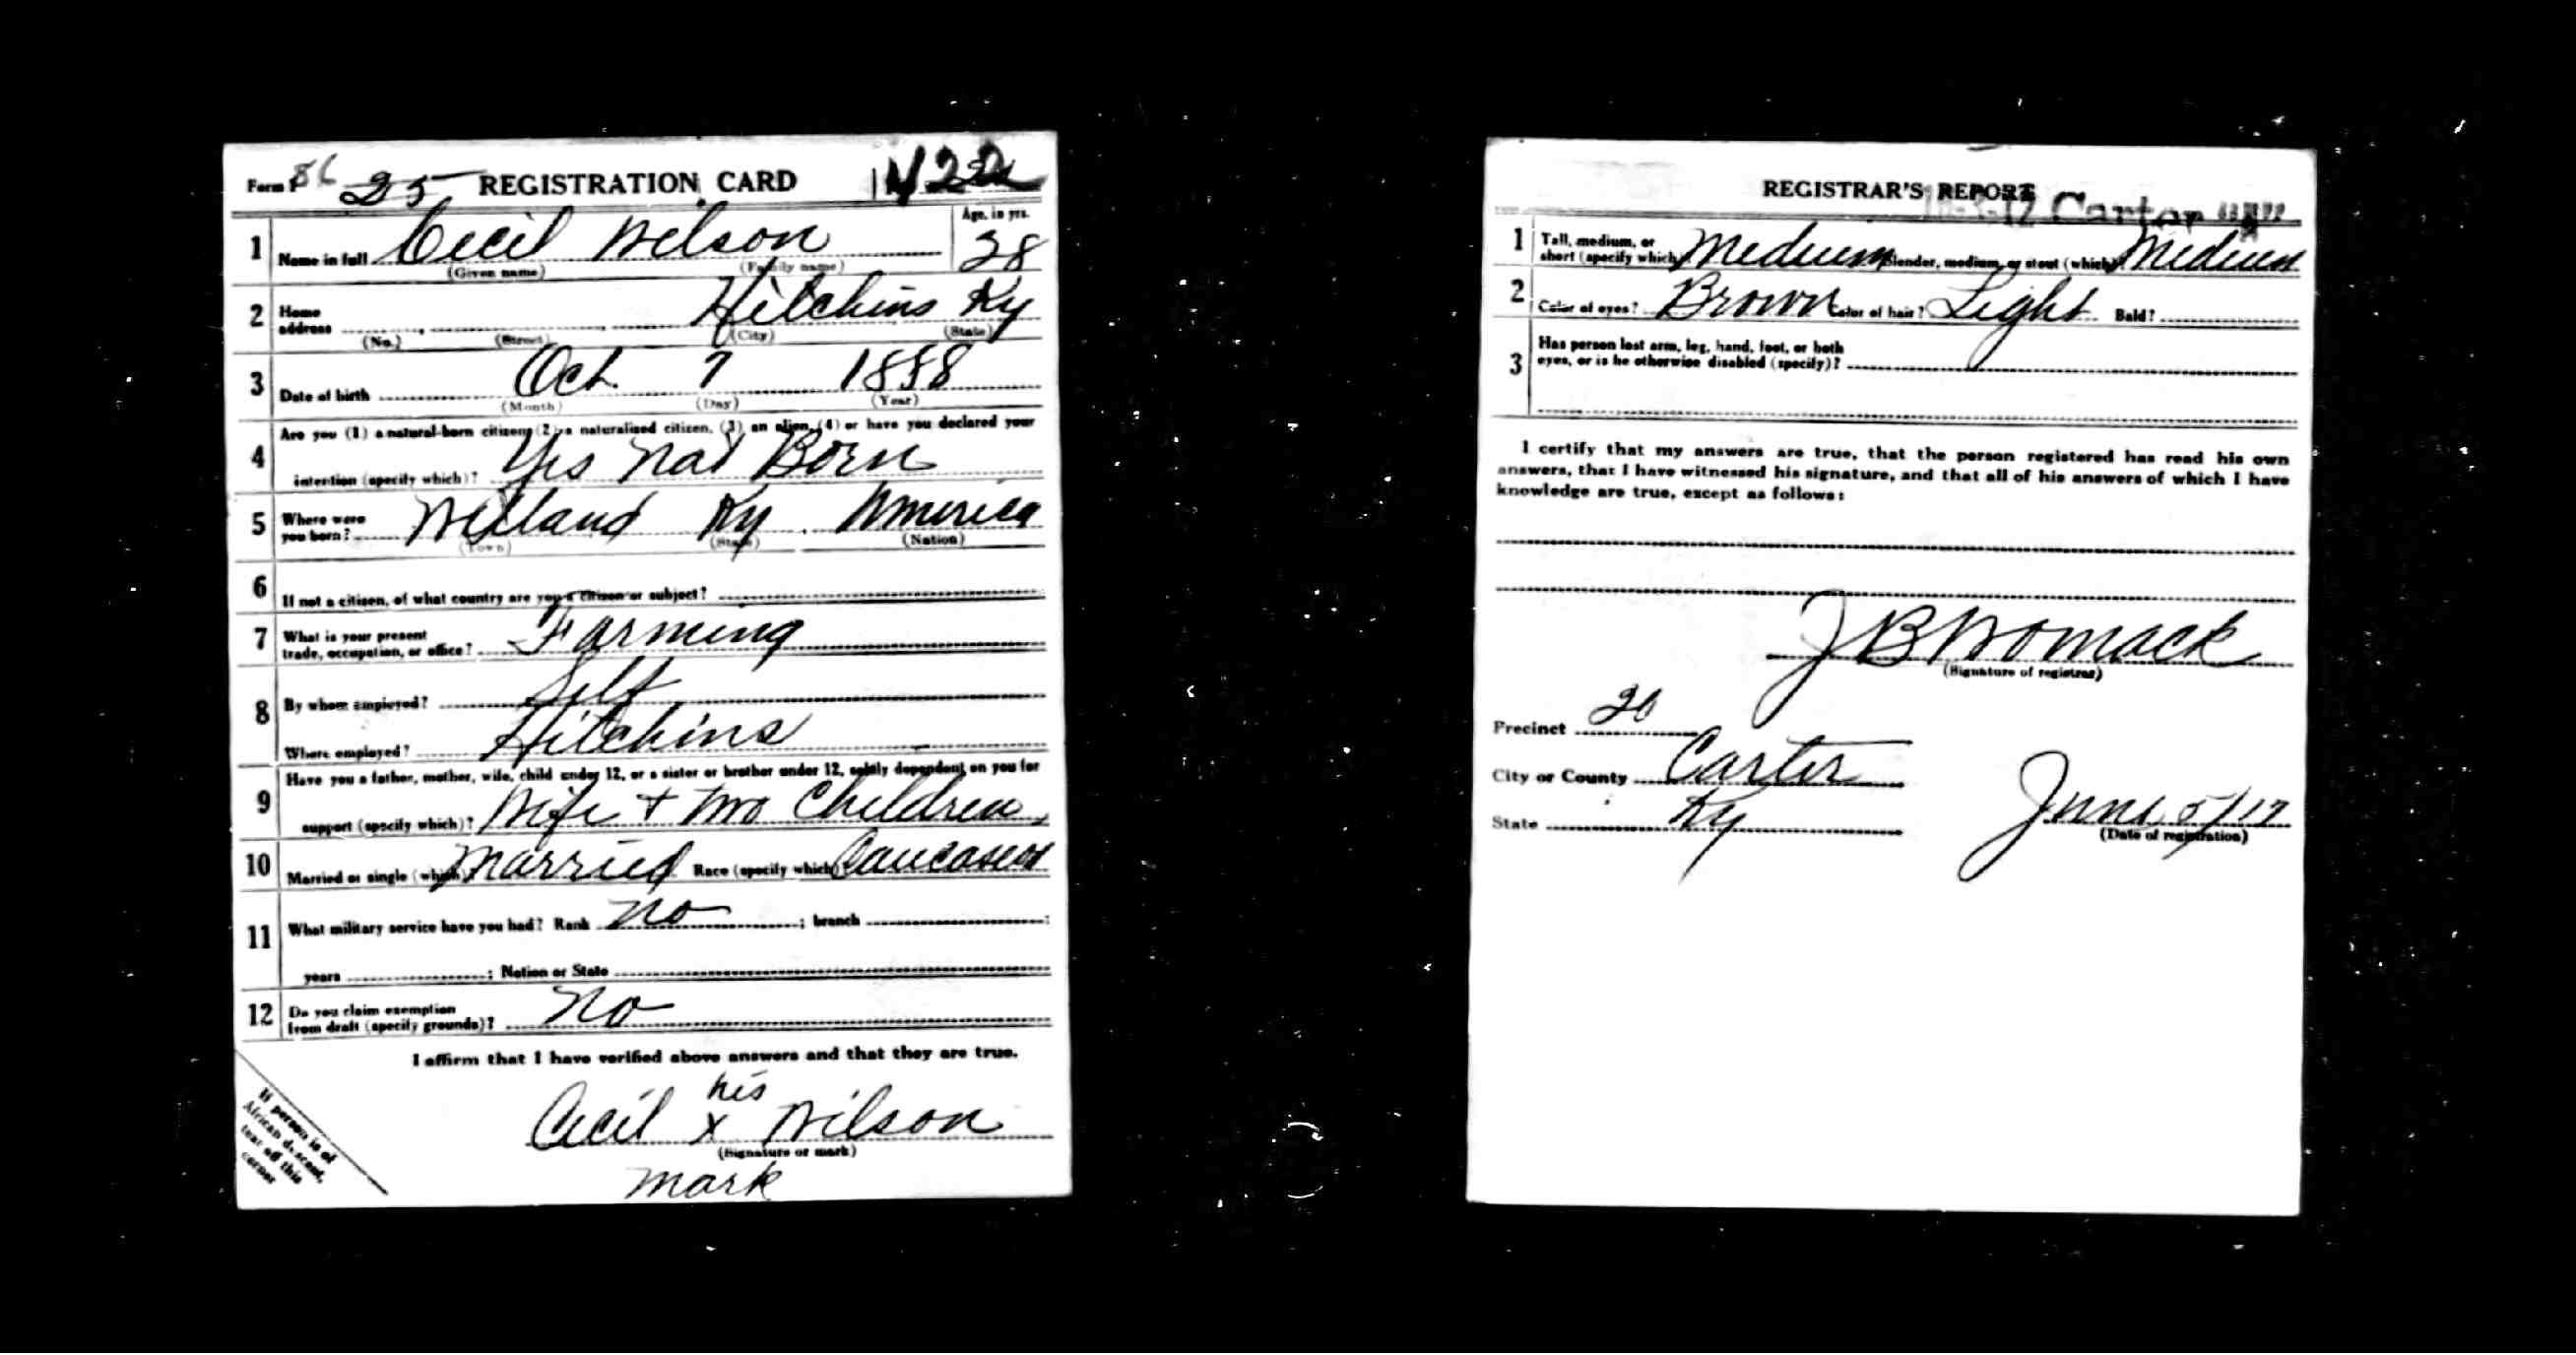 Form 1 86 25 REGISTRATION CARD
Age, in yrs.
1 Name in full Cecil Wilson 28
(Given name) (Family name)
2 Home address Hitchins Ky
(No.) (Street) (City) (State)
3 Date of birth Oct. 7 1888
(Month) (Day) (Year)
4 Are you (1) a natural-born citizen, (2) a naturalized citizen, (3) an alien, (4) or have you declared your
intention (specify which)? Yes Nat Born
5 Where were you born? Willard Ky. America
(Town) (State) (Nation)
6 If not a citizen, of what country are you a citizen or subject?
7 What is your present
trade, occupation, or office? Farming
8 By whom employed? Self
Where employed? Hitchins
9 Have you a father, mother, wife, child under 12, or a sister or brother under 12, solely dependent on you for
support (specify which)? Wife + two Children
10 Married or single (which) Married Race (specify which) Caucasian
11 What military service have you had? Rank no ; branch ;
years ; Nation or State
12 Do you claim exemption
from draft (specify grounds)? No
I affirm that I have verified above answers and that they are true.
his
Cecil x Wilson
(Signature or mark)
mark
If person is of
African descent,
tear off this
corner
REGISTRAR'S REPORT
Carter
1 Tall, medium, or
short (specify which) Medium Slender, medium, or stout (which) Medium
2 Color of eyes? Brown Color of hair? Light Bald?
3 Has person lost arm, leg, hand, foot, or both
eyes, or is he otherwise disabled (specify)?
I certify that my answers are true, that the person registered has read his own
answers, that I have witnessed his signature, and that all of his answers of which I have
knowledge are true, except as follows:
J B Womack
(Signature of registrar)
Precinct 20
City or County Carter
State Ky June 5/17
(Date of registration)